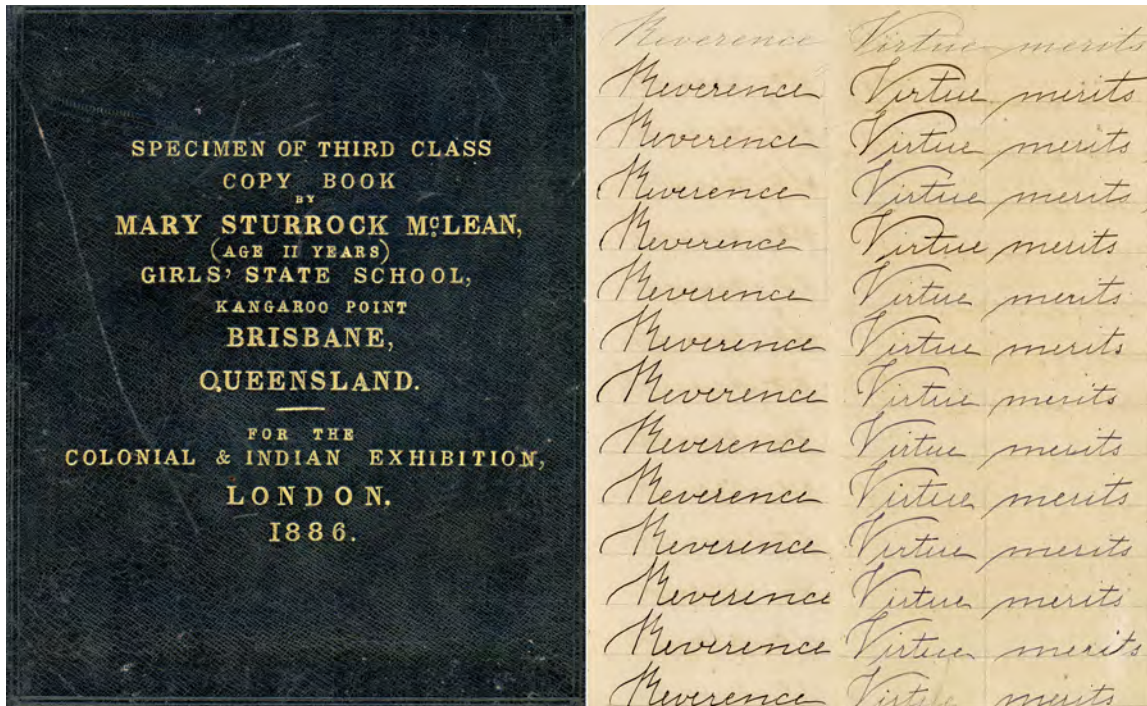 SPECIMEN OF THIRD CLASS
COPY BOOK
BY
MARY STURROCK McLEAN,
(AGE 11 YEARS)
GIRLS' STATE SCHOOL,
KANGAROO POINT
BRISBANE,
QUEENSLAND.
FOR THE
COLONIAL & INDIAN EXHIBITION,
LONDON.
1886.
Reverence Virtue merits
Reverence Virtue merits
Reverence Virtue merits
Reverence Virtue merits
Reverence Virtue merits
Reverence Virtue merits
Reverence Virtue merits
Reverence Virtue merits
Reverence Virtue merits
Reverence Virtue merits
Reverence Virtue merits
Reverence Virtue merits
Reverence Virtue merits
Reverence Virtue merits